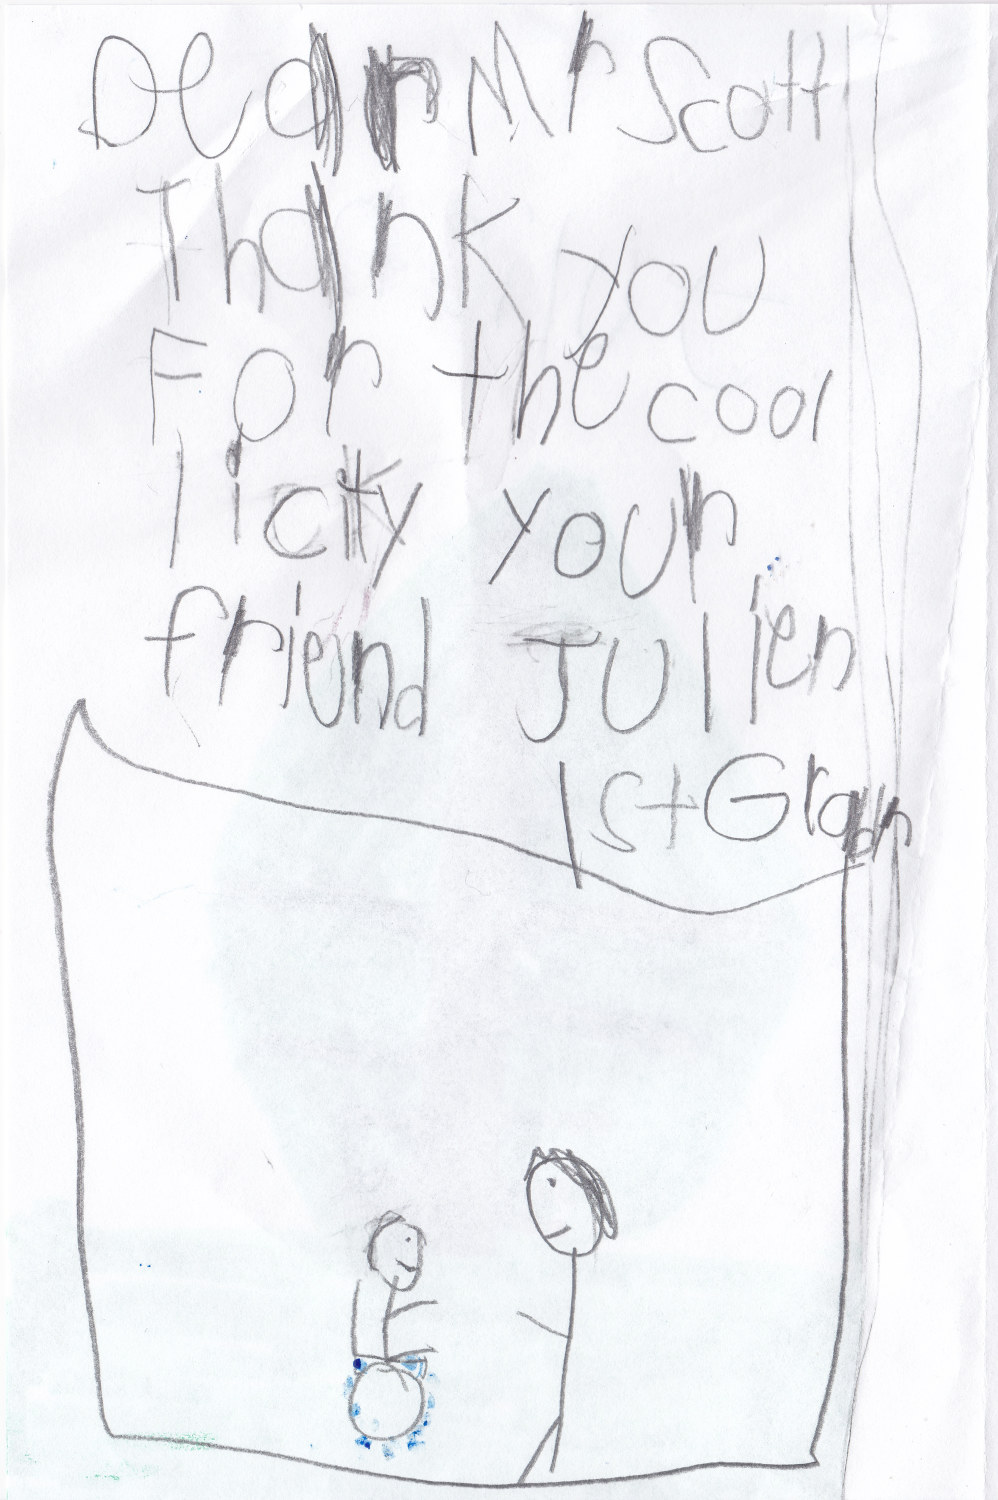 Dear Mr Scott
Thank you
For the cool
licky your
friend JUlien
1st Gradr